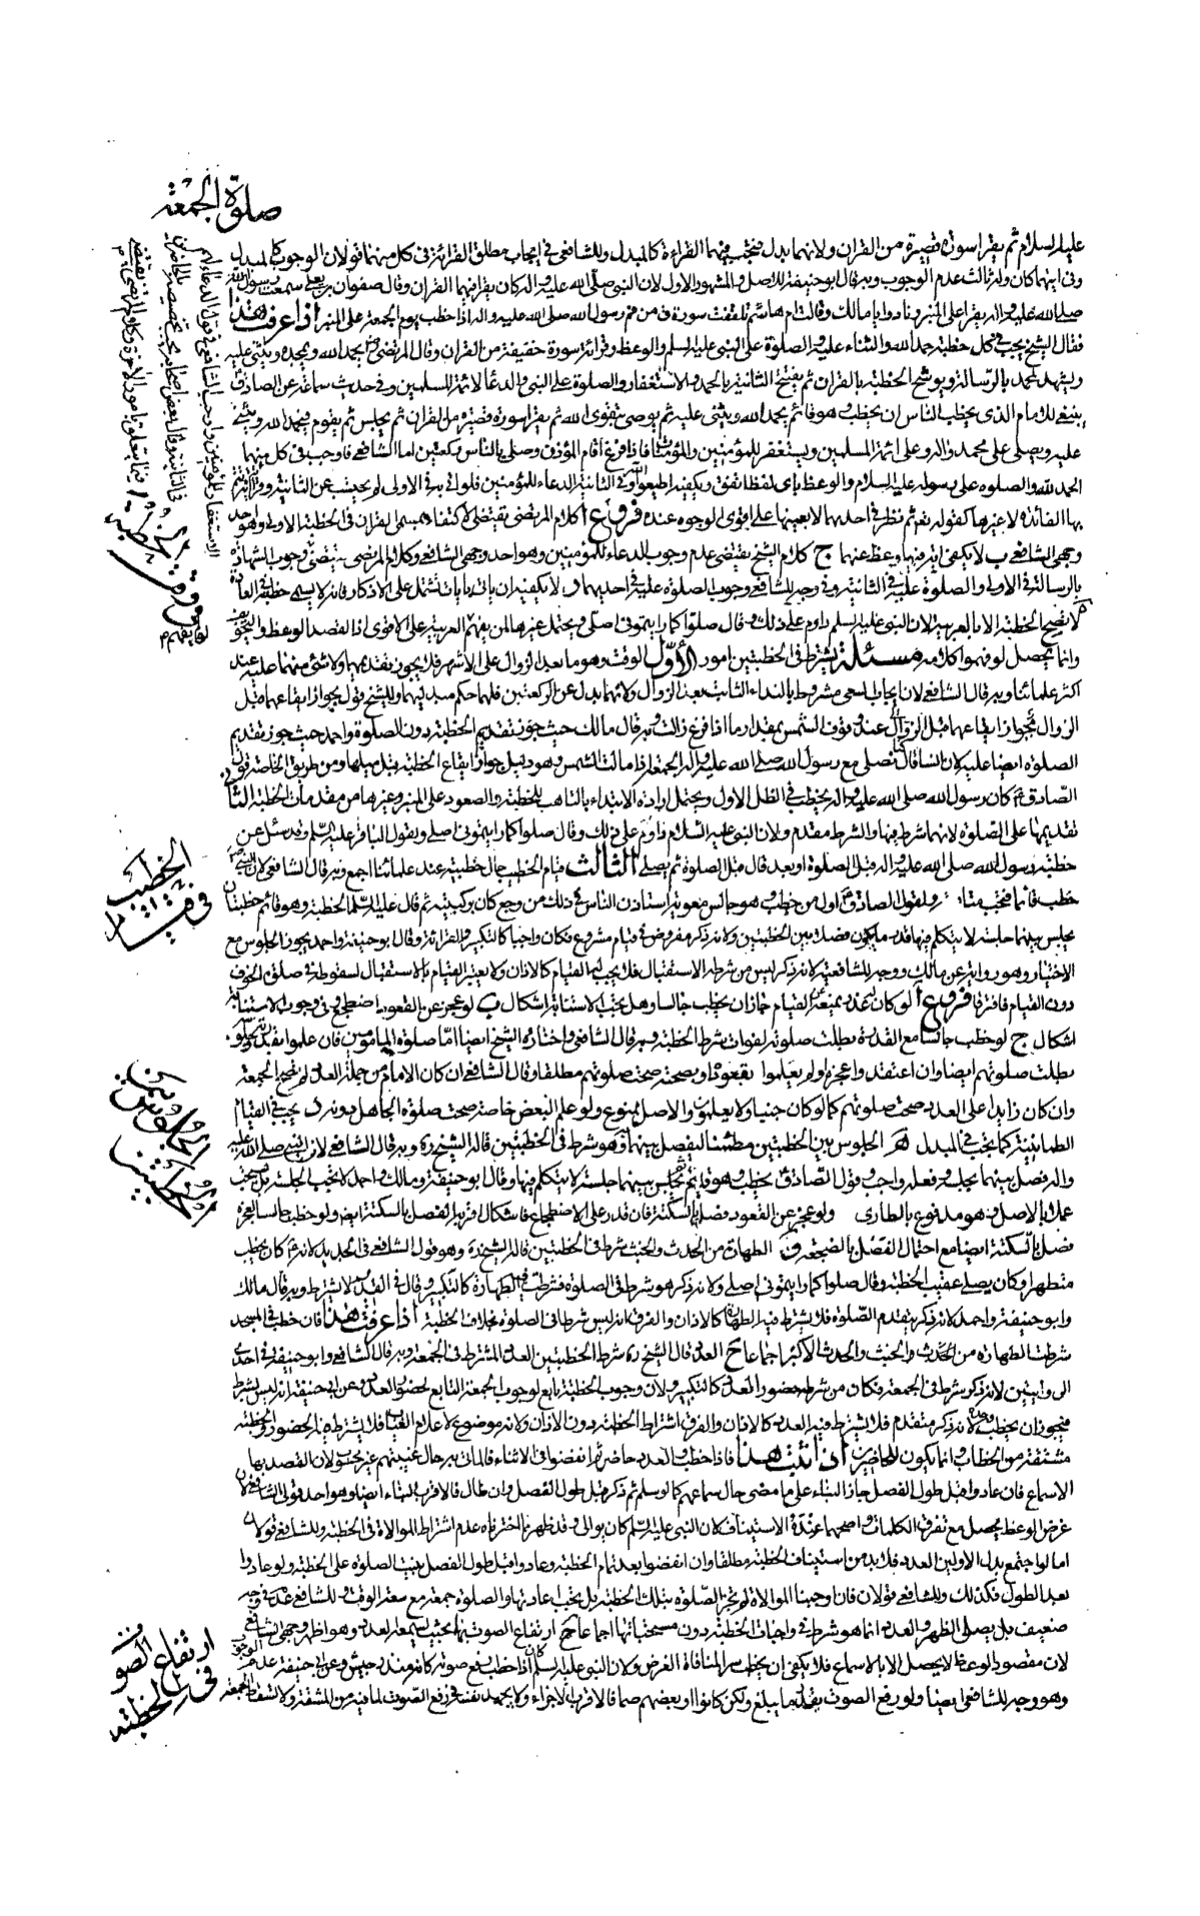 صلوة الجمعة
عليه السلام ثم يقرا سورة قصيرة من القران ولانهما بدل فتجب فيهما القراءة كالمبدل وللشافعي في ايجاب مطلق القرائة في كل منهما قولان الوجوب كالمبدل
وفي ايتهما كان وله ثالث عدم الوجوب وبه قال ابو حنيفة للاصل والمشهور الاول لان النبي صلى الله عليه واله كان يقرا فيهما القران وقال صفوان بن يعلى سمعت رسول الله
صلى الله عليه واله يقرا على المنبر ونادوا يا مالك وقالت ام هاشم تلقفت سورة ق من فم رسول الله صلى الله عليه واله اذا خطب يوم الجمعة على المنبر اذا عرفت هذا
فقال الشيخ يجب في كل خطبة حمد الله والثناء عليه والصلوة على النبي عليه السلم والوعظ وقرائة سورة خفيفة من القران وقال المرتضى يحمد الله ويمجده ويثني عليه
ويشهد لمحمد بالرسالة ويوشح الخطبة بالقران ثم يفتتح الثانية بالحمد والاستغفار والصلوة على النبي والدعا لائمة المسلمين وفي حديث سماعة عن الصادق
ينبغي للامام الذي يخطب الناس ان يخطب وهو قائم يحمد الله ويثني عليه ثم يوصي بتقوى الله ثم يقرا سورة قصيرة من القران ثم يجلس ثم يقوم فيحمد الله ويثني
عليه ويصلي على محمد واله وعلى ائمة المسلمين ويستغفر للمؤمنين والمؤمنات فاذا فرغ اقام المؤذن وصلى بالناس ركعتين اما الشافعي فاوجب في كل منهما
الحمد لله والصلوة على رسوله عليه السلام والوعظ باي لفظ اتفق ويكفيه اطيعوا الله وفي الثانية الدعاء للمؤمنين فلو اتى به في الاولى لم يحتسب عن الثانية
بها الفائدة لا غيرها كقوله ثم نظر في احديهما لا بعينها على اقوى الوجوه عنده فروع ا كلام المرتضى يقتضي الاكتفاء بمسمى القران في الخطبة الاولى وهو احد
وجهي الشافعي ب لا يكفي اية فيها وعظ عنهما ج كلام الشيخ يقتضي عدم وجوب الدعاء للمؤمنين وهو احد وجهي الشافعي وكلام المرتضى يقتضي وجوب الشهادة
بالرسالة في الاولى والصلوة عليه في الثانية وفي وجه للشافعي وجوب الصلوة عليه في احديهما د لا يكفيه ان ياتي بايات تشتمل على الاذكار فانه لا يسمى خطبة في العادة
ه لا تصح الخطبة الا بالعربية لان النبي عليه السلم داوم على ذلك وقال صلوا كما رايتموني اصلي ويحتمل غيرها لمن لا يفهم العربية على الاقوى اذ القصد الوعظ والتخويف
وانما يحصل لو فهموا كلامه مسئلة يشترط في الخطبتين امور الاول الوقت وهو ما بعد الزوال على الاشهر فلا يجوز تقديمهما ولا شئ منهما عليه عند
اكثر علمائنا وبه قال الشافعي لان ايجاب السعي مشروط بالنداء الثابت بعد الزوال ولانهما بدل عن الركعتين فلهما حكم مبدليهما وللشيخ قول بجواز ايقاعهما قبل
الزوال عند وقوف الشمس بمقدار ما اذا فرغ زالت وبه قال مالك حيث جوز تقديم الخطبة دون الصلوة واحمد حيث جوز تقديم
الصلوة ايضا عليه لان انسا قال كنا نصلي مع رسول الله صلى الله عليه واله الجمعة اذا مالت الشمس وهو دليل جواز ايقاع الخطبة قبل ميلها ومن طريق الخاصة قول
الصادق كان رسول الله صلى الله عليه واله يخطب في الظل الاول ويحتمل ارادة الابتداء بالتاهب للخطبة والصعود على المنبر وغيرها من مقدمات الخطبة الثاني
تقديمهما على الصلوة لانهما شرط فيها والشرط مقدم ولان النبي عليه السلام داوم على ذلك وقال صلوا كما رايتموني اصلي ويقول الباقر عليه السلم وقد سئل عن
خطبة رسول الله صلى الله عليه واله قبل الصلوة او بعد قال قبل الصلوة ثم يصلي الثالث قيام الخطيب حال خطبته عند علمائنا اجمع وبه قال الشافعي لان النبي
خطب قائما فتجب متابعته ولقول الصادق اول من خطب وهو جالس معوية استاذن الناس في ذلك من وجع كان بركبتيه ثم قال عليه السلم الخطبة وهو قائم خطبتان
يجلس بينهما جلسة لا يتكلم فيها قدر ما يكون فصل ما بين الخطبتين ولانه ذكر مفروض في قيام مشروع فكان واجبا كالتكبير والقرائة وقال ابو حنيفة واحمد يجوز الجلوس مع
الاختيار وهو رواية عن مالك ووجه للشافعية لانه ذكر ليس من شرطه الاستقبال فلا يجب له القيام كالاذان ولا يعتبر القيام بالاستقبال لسقوطه في صلوة الخوف
دون القيام فافترقا فروع ا لو كان له عذر يمنعه عن القيام جاز ان يخطب جالسا وهل تجب الاستنابة اشكال ب لو عجز عن القعود اضطجع وفي وجوب الاستنابة
اشكال ج لو خطب جالسا مع القدرة بطلت صلوته لفوات شرط الخطبة وبه قال الشافعي واختاره الشيخ ايضا اما صلوة المامومين فان علموا بقدرته
بطلت صلوتهم ايضا وان اعتقدوا عجزه او لم يعلموا بقعوده او بصحته صحت صلوتهم مطلقا وقال الشافعي ان كان الامام من جملة العدد لم تصح الجمعة
وان كان زايدا على العدد صحت صلوتهم كما لو كان جنبا ولا يعلمون والاصل ممنوع ولو علم البعض خاصة صحت صلوة الجاهل دونه د يجب في القيام
الطمانينة كما يجب في المبدل ه الجلوس بين الخطبتين مطمئنا ليفصل بينهما وهو شرط في الخطبتين قاله الشيخ ره وبه قال الشافعي لان النبي صلى الله عليه
واله فصل بينهما بجلسة وفعله واجب وقول الصادق يخطب وهو قائم ثم يجلس بينهما جلسة لا يتكلم فيها وقال ابو حنيفة ومالك واحمد لا تجب الجلسة بل تستحب
عملا بالاصل وهو مدفوع بالطاري ولو عجز عن القعود فصل بالسكتة فان قدر على الاضطجاع فاشكال اقربه الفصل بالسكتة ايضا ولو خطب جالسا لعجزه
فصل بالسكتة ايضا مع احتمال الفصل بالضجعة و الطهارة من الحدث والخبث شرط في الخطبتين قاله الشيخ ره وهو قول الشافعي في الجديد لانه كان يخطب
متطهرا وكان يصلي عقيب الخطبة وقال صلوا كما رايتموني اصلي ولانه ذكر هو شرط في الصلوة فشرطت فيه الطهارة كالتكبير وقال في القديم لا يشترط وبه قال مالك
وابو حنيفة واحمد لانه ذكر يتقدم الصلوة فلا يشترط فيه الطهارة كالاذان والفرق انه ليس شرطا في الصلوة بخلاف الخطبة اذا عرفت هذا فان خطب في المسجد
شرطت الطهارة من الحدث والخبث والحدث الاكبر اجماعا ح العدد قال الشيخ ره شرط الخطبتين العدد المشترط في الجمعة وبه قال الشافعي وابو حنيفة في احدى
الروايتين لانه ذكر شرط في الجمعة فكان من شرطه حضور العدد كالتكبير ولان وجوب الخطبة تابع لوجوب الجمعة التابع لحضور العدد وعن ابي حنيفة انه ليس بشرط
فيجوز ان يخطب وحده لانه ذكر متقدم فلا يشترط فيه العدد كالاذان والفرق اشتراط الخطبة دون الاذان ولانه موضوع لاعلام الغياب فلا يشترط له الحضور والخطبة
مشتقة من الخطاب وانما يكون للحاضرين اذا ثبت هذا فاذا خطب والعدد حاضر ثم انفضوا في الاثناء فالماتي به حال غيبتهم غير محسوب لان القصد بها
الاسماع فان عادوا قبل طول الفصل جاز البناء على ما مضى حال سماعهم كما لو سلم ثم ذكر قبل طول الفصل وان طال فالاقرب البناء ايضا وهو احد قولي الشافعي
غرض الوعظ يحصل مع تفرق الكلمات واصحهما عنده الاستيناف لان النبي عليه السلم كان يوالي وقد ظهر بما اخترناه عدم اشتراط الموالاة في الخطبة وللشافعي قولان
اما لو اجتمع بدل الاولين العدد فلا بد من استيناف الخطبة مطلقا وان انفضوا بعد تمام الخطبة وعادوا قبل طول الفصل بنيت الصلوة على الخطبة ولو عادوا
بعد الطول فكذلك وللشافعي قولان فان اوجبنا الموالاة لم تجز الصلوة بتلك الخطبة بل يجب اعادتها والصلوة جمعة مع سعة الوقت وللشافعي وجه
ضعيف بل يصلي الظهر والعدد انما هو شرط في واجبات الخطبة دون مستحباتها اجماعا ارتفاع الصوت بهما بحيث يسمعه العدد وهو اظهر وجهي الشافعي
لان مقصود الوعظ لا يحصل الا بالاسماع فلا يكفي ان يخطب سرا لمنافاة الغرض ولان النبي عليه السلم كان اذا خطب رفع صوته كانه منذر جيش وعن ابي حنيفة عدم الوجوب
وهو وجه للشافعي ايضا ولو رفع الصوت بقدر ما يبلغ ولكن كانوا او بعضهم صما فالاقرب الاجزاء ولا يجهد نفسه في رفع الصوت لما فيه من المشقة ولا تسقط الجمعة
في قيام الخطيب
ارتفاع الصوت في الخطبة